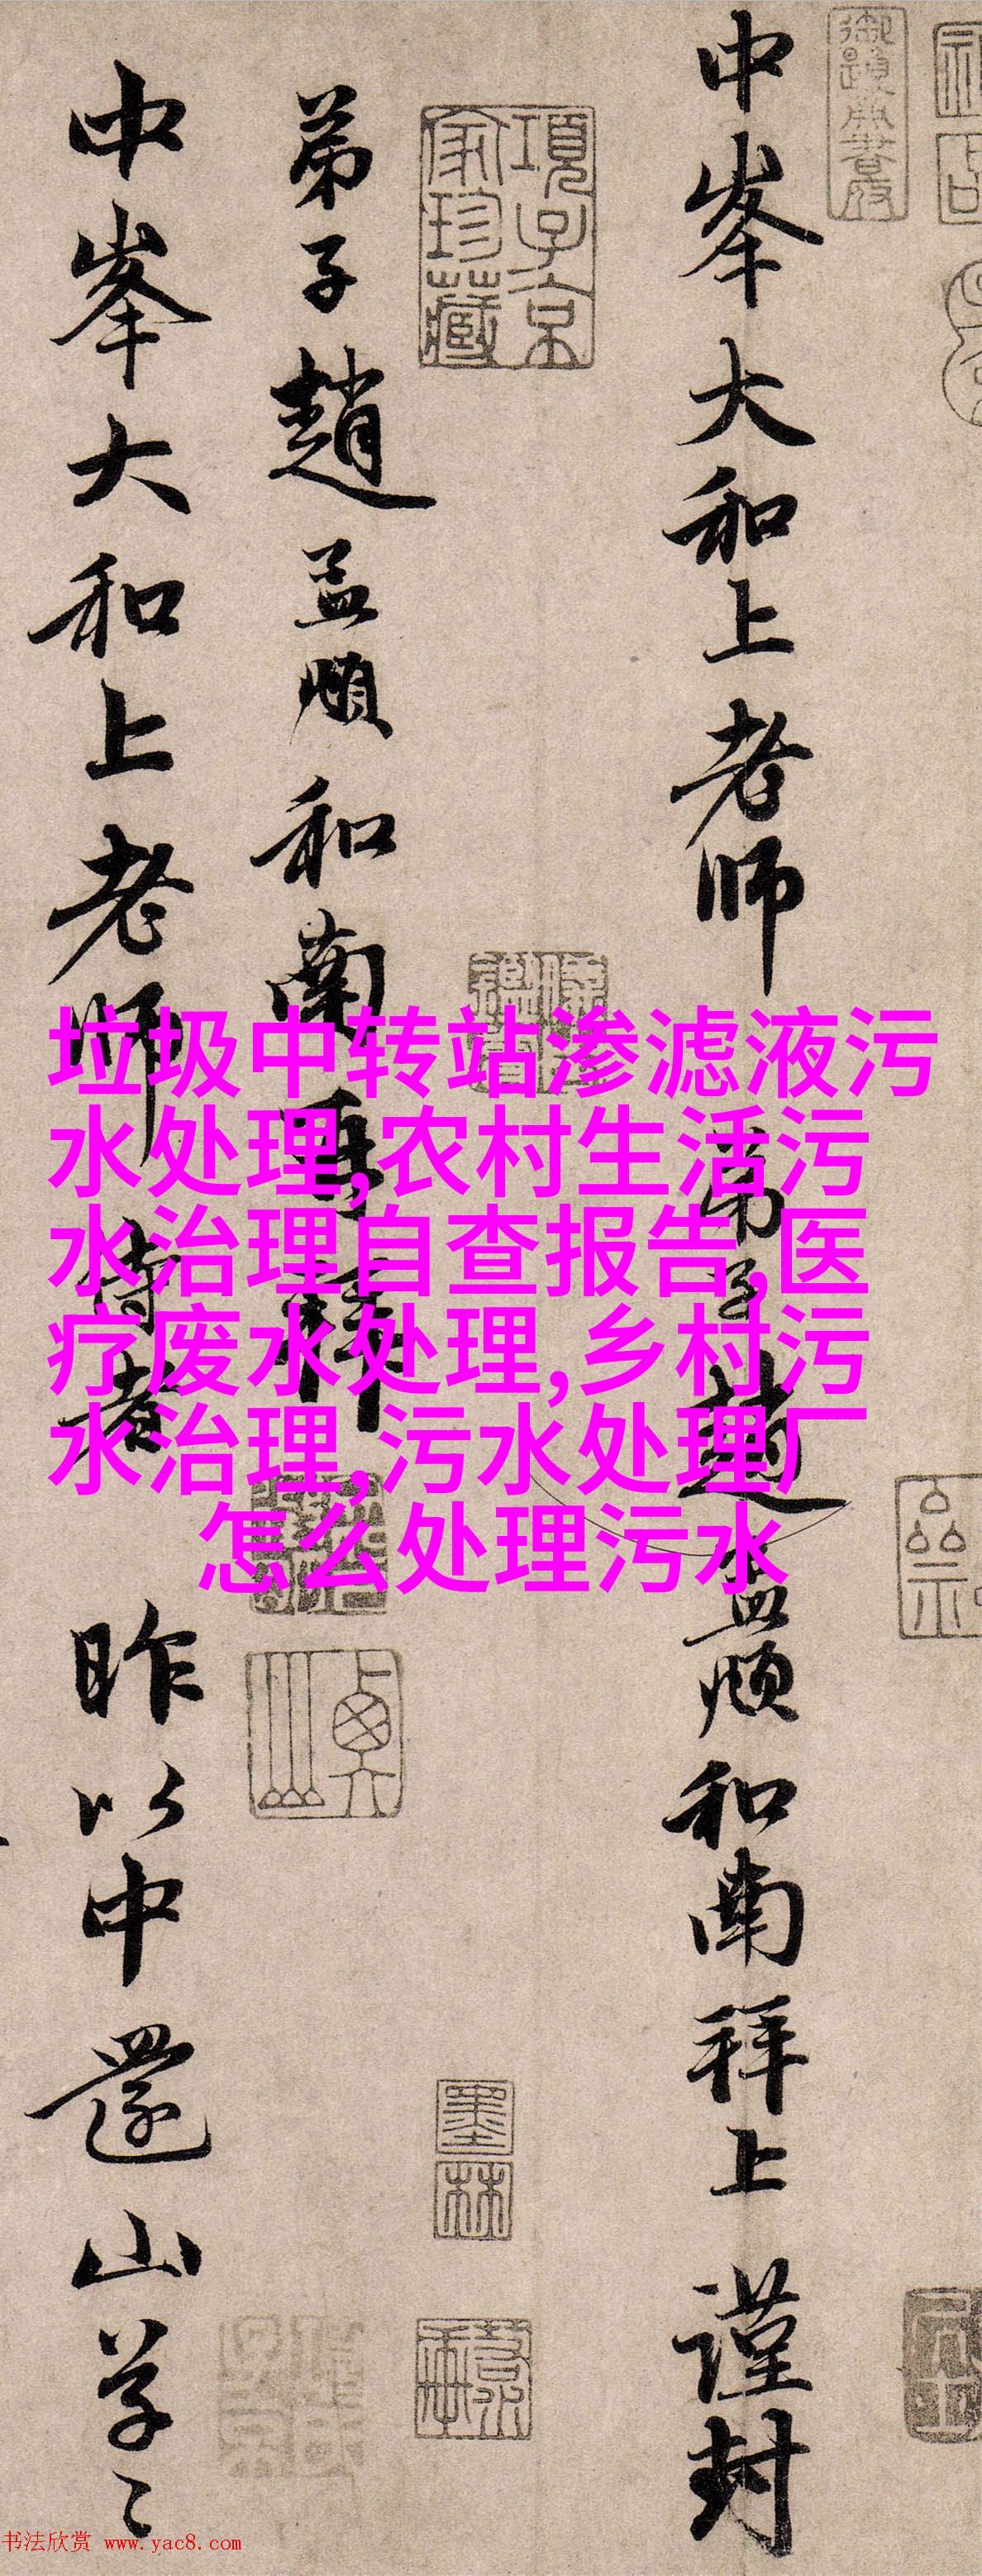 中峯大和上老师
弟子趙孟頫和南拜上 謹封
項子京
家珍藏
弟子趙孟頫和南再拜
墨
林
中峯大和上老师 侍者
昨以中還山草〻
垃圾中转站渗滤液污
水处理,农村生活污
水治理自查报告,医
疗废水处理,乡村污
水治理,污水处理厂
怎么处理污水
书法欣赏 www.yac8.com